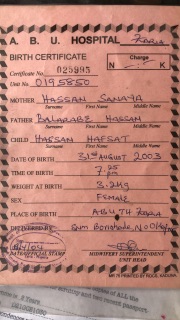 A. B. U. HOSPITAL ZARIA
BIRTH CERTIFICATE Charge
Certificate No. 025995 N : K
Unit No. 0195850
MOTHER HASSAN SAMAYA
Surname First Name Middle Name
FATHER BALARABE HASSAN
Surname First Name Middle Name
CHILD HASSAN HAFSAT
Surname First Name Middle Name
DATE OF BIRTH 31st AUGUST 2003
TIME OF BIRTH 7:25 pm
WEIGHT AT BIRTH 3.2kg
SEX FEMALE
PLACE OF BIRTH ABUTH ZARIA
DELIVERED BY
DATE/OFFICIAL STAMP MIDWIFERY SUPERINTENDENT
UNIT HEAD